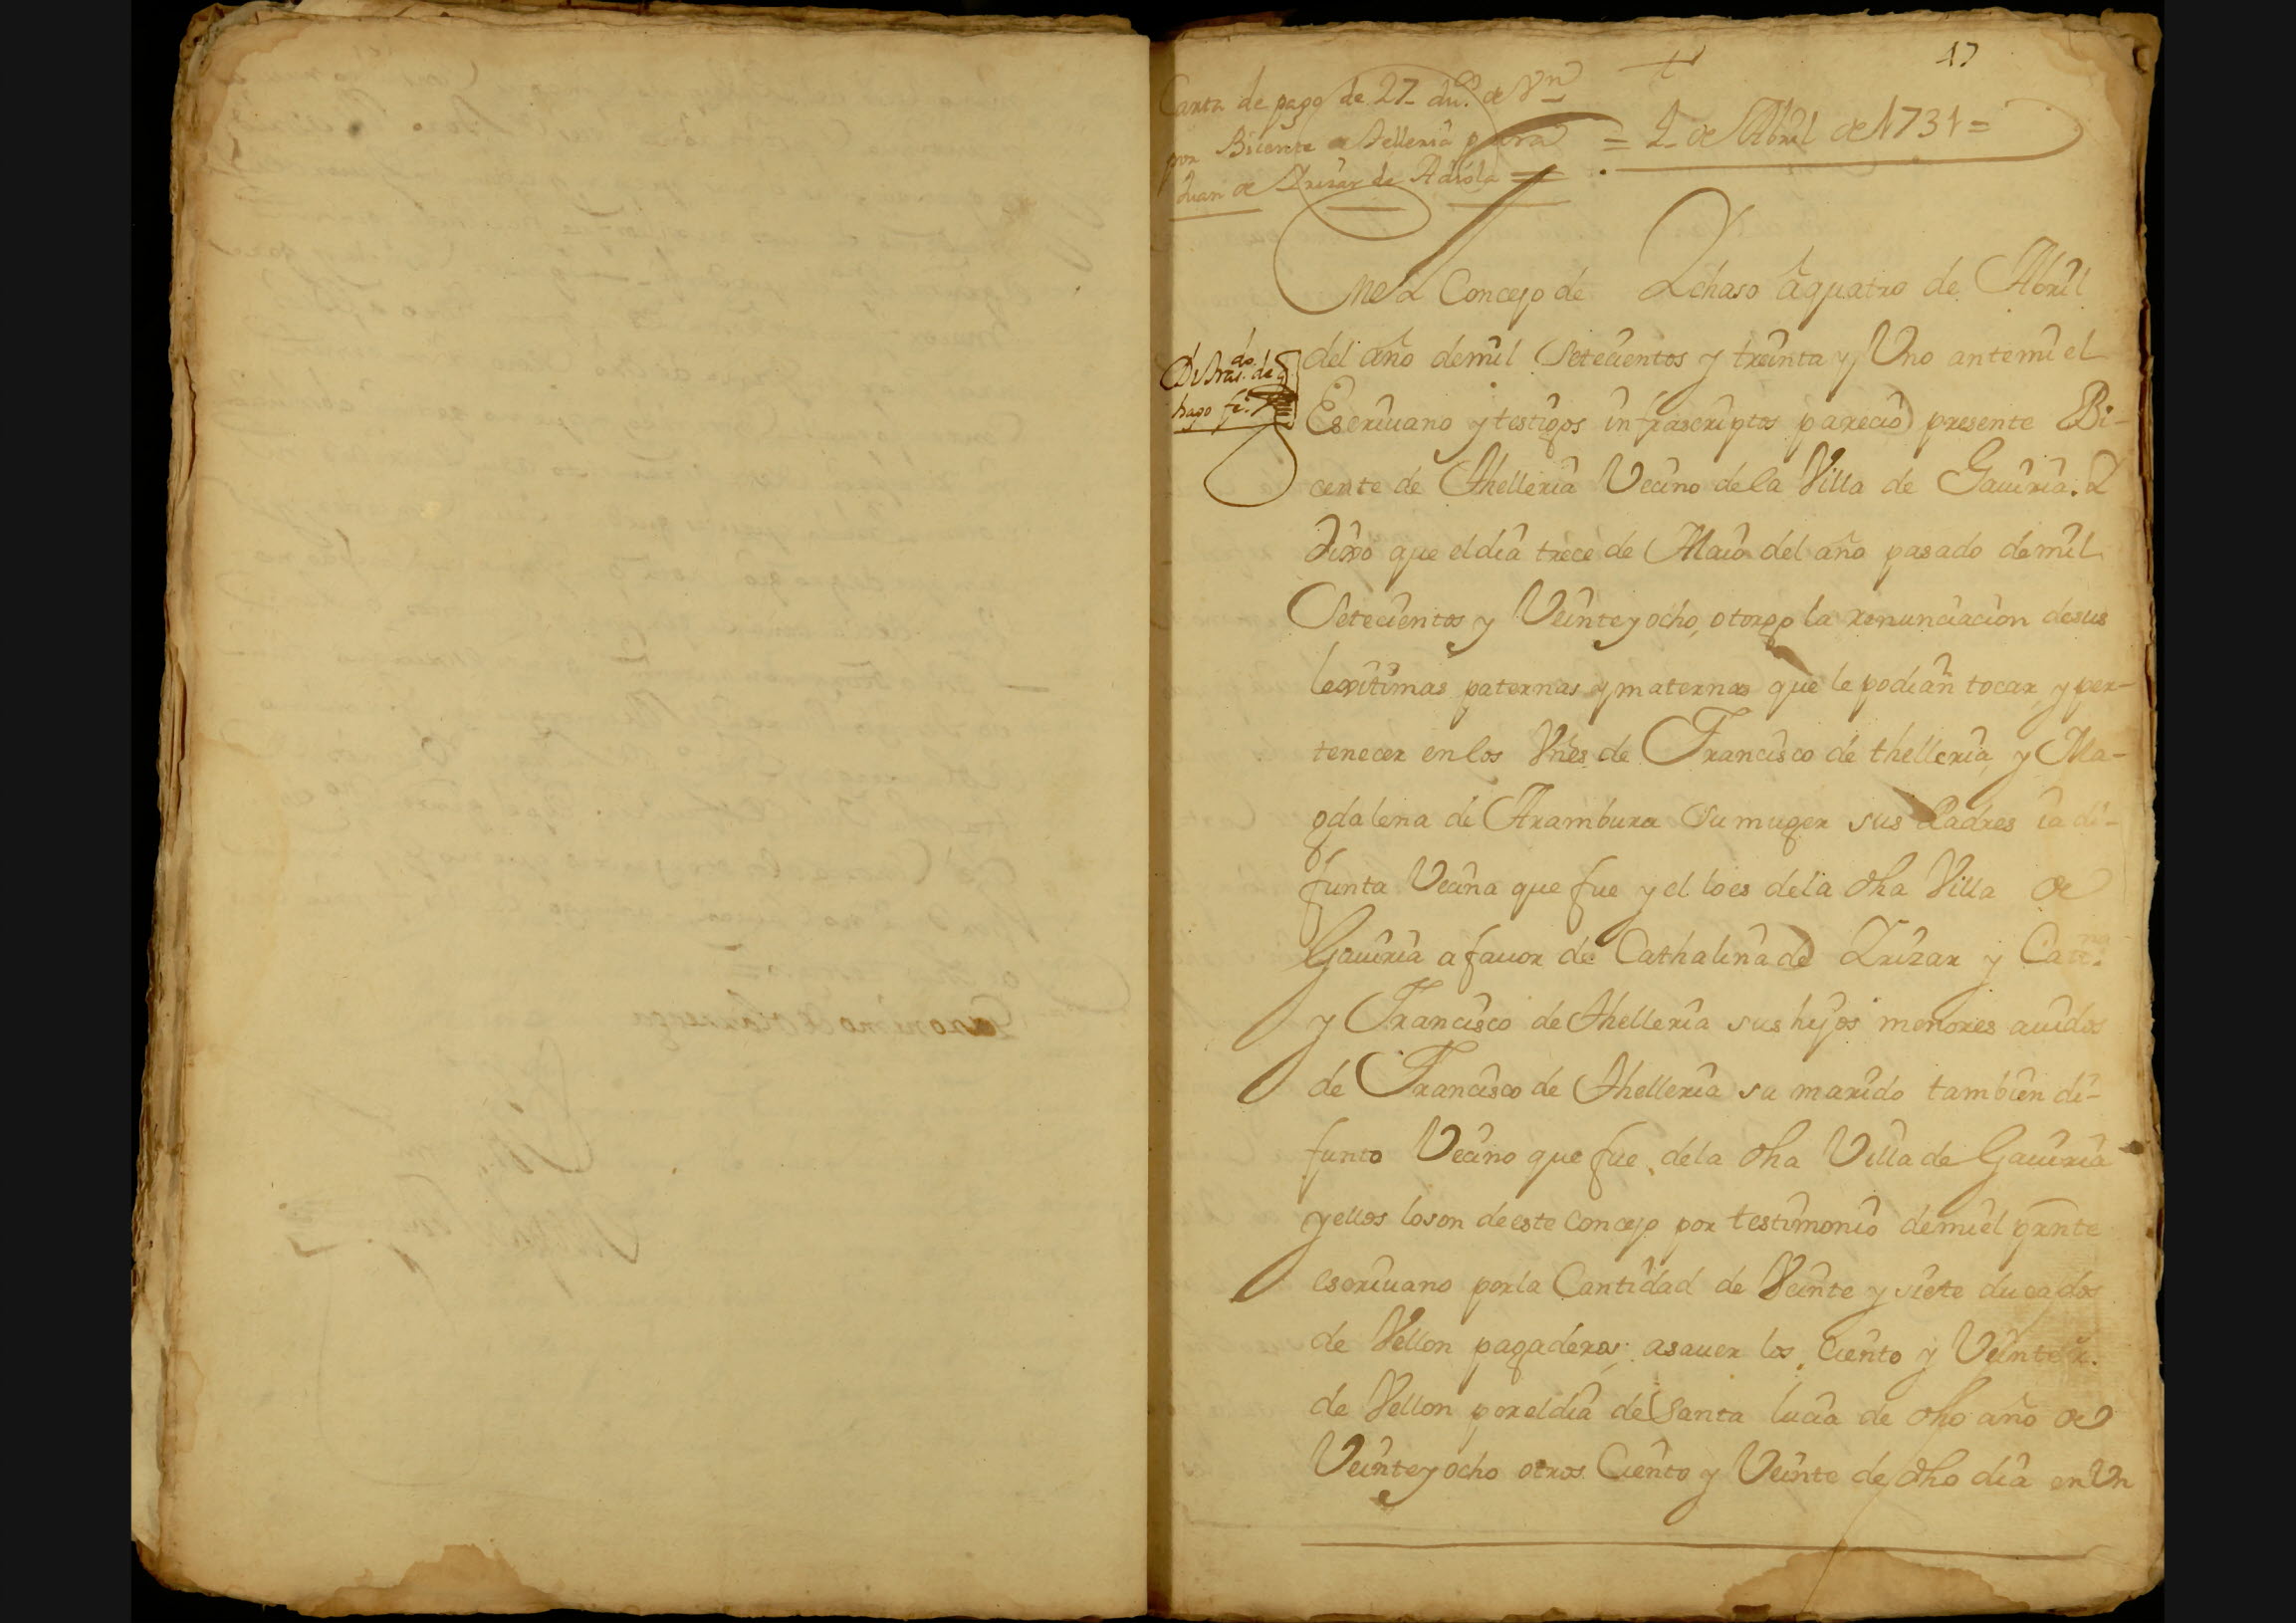 17
Carta de pago de 27 du.s de Vn
por Bicente de Telleria para
Juan de Yrizar de Adiola =
= 4 de Abril de 1731 =
En el Concejo de Ychaso â quatro de Abril
del año de mil Setecientos y treinta y Uno ante mi el
hago fe.
Escriuano y testigos infrascriptos pareciò presente Bi-
cente de Thelleria Vecino de la Villa de Gauiria. Y
Dixo que el dia trece de Maio del año pasado de mil
Setecientos y Veinte y ocho, otorgo la renunciacion de sus
lexitimas paternas y maternas que le podian tocar, y per-
tenecer en los Vnes de Francisco de thelleria, y Ma-
gdalena de Aramburu su muger sus Padres ia di-
funta Vecina que fue y el lo es de la dha Villa de
Gauiria a fauor de Cathalina de Yrizar y
y Francisco de Thelleria sus hijos menores auidos
de Francisco de Thelleria su marido tambien di-
funto Vecino que fue de la dha Villa de Gauiria
y ellos lo son de este concejo por testimonio de mi el prnte
escriuano por la Cantidad de Veinte y siete ducados
de Vellon pagaderos; asauer los Ciento y Veinte r.
de Vellon por el dia de Santa lucia de dho año de
Veinte y ocho otros Ciento y Veinte de dho dia en Un